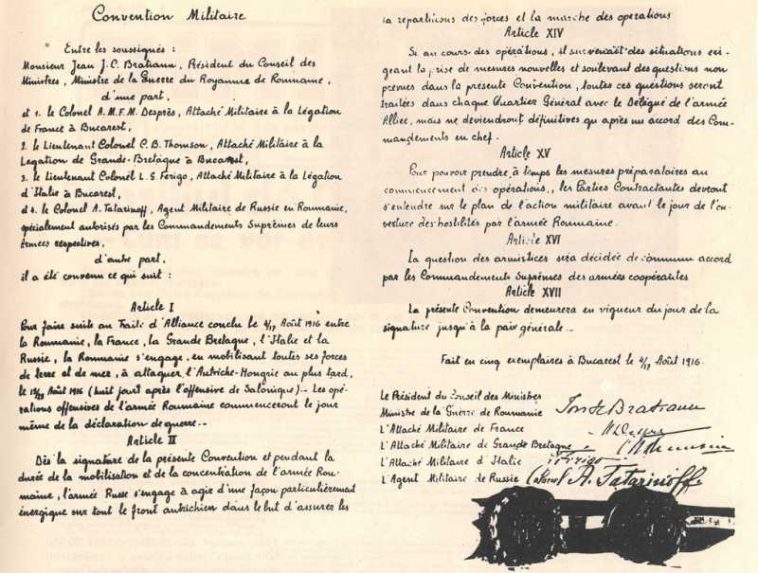 Convention Militaire
Entre les soussignés :
Monsieur Jean J.C. Bratianu, Président du Conseil des
Ministres, Ministre de la Guerre du Royaume de Roumanie,
d'une part,
et 1. le Colonel A.M.F.M. Desprès, Attaché Militaire à la Légation
de France à Bucarest,
2. le Lieutenant Colonel C.B. Thomson, Attaché Militaire à la
Legation de Grande-Bretagne à Bucarest,
3. le Lieutenant Colonel L.S. Ferigo, Attaché Militaire à la Légation
d'Italie à Bucarest,
et 4. le Colonel A. Tatarinoff, Agent Militaire de Russie en Roumanie,
spécialement autorisés par les Commandements Suprêmes de leurs
Armées respectives,
d'autre part,
il a été convenu ce qui suit :
Article I
Pour faire suite au Traité d'Alliance conclu le 4/17 Août 1916 entre
la Roumanie, la France, la Grande Bretagne, l'Italie et la
Russie, la Roumanie s'engage, en mobilisant toutes ses forces
de terre et de mer, à attaquer l'Autriche-Hongrie au plus tard,
le 15/28 Août 1916 (huit jours après l'offensive de Salonique) - Les opé-
rations offensives de l'armée Roumaine commenceront le jour
même de la déclaration de guerre. -
Article II
Dès la signature de la présente Convention et pendant la
durée de la mobilisation et de la concentration de l'armée Rou-
maine, l'armée Russe s'engage à agir d'une façon particulièrement
énergique sur tout le front autrichien dans le but d'assurer les
la repartition des forces et la marche des operations
Article XIV
Si au cours des opérations, il survenait des situations exi-
geant la prise de mesures nouvelles et soulevant des questions non
prévues dans la presente Convention, toutes ces questions seront
traitées dans chaque Quartier Général avec le Délégué de l'armée
Alliée, mais ne deviendront définitives qu'après un accord des Com-
mandements en chef.
Article XV
Pour pouvoir prendre à temps les mesures préparatoires au
commencement des opérations, les Parties Contractantes devront
s'entendre sur le plan de l'action militaire avant le jour de l'ou-
verture des hostilités par l'armée Roumaine.
Article XVI
La question des armistices sera décidée de commun accord
par les Commandements Suprêmes des armées coopérantes
Article XVII
La présente Convention demeurera en vigueur du jour de la
signature jusqu'à la paix générale. -
Fait en cinq exemplaires à Bucarest le 4/17 Août 1916.
Le Président du Conseil des Ministres
Ministre de la Guerre de Roumanie
L'Attaché Militaire de France
L'Attaché Militaire de Grande Bretagne
L'Attaché Militaire d'Italie
L'Agent Militaire de Russie Colonel A. Tatarinoff